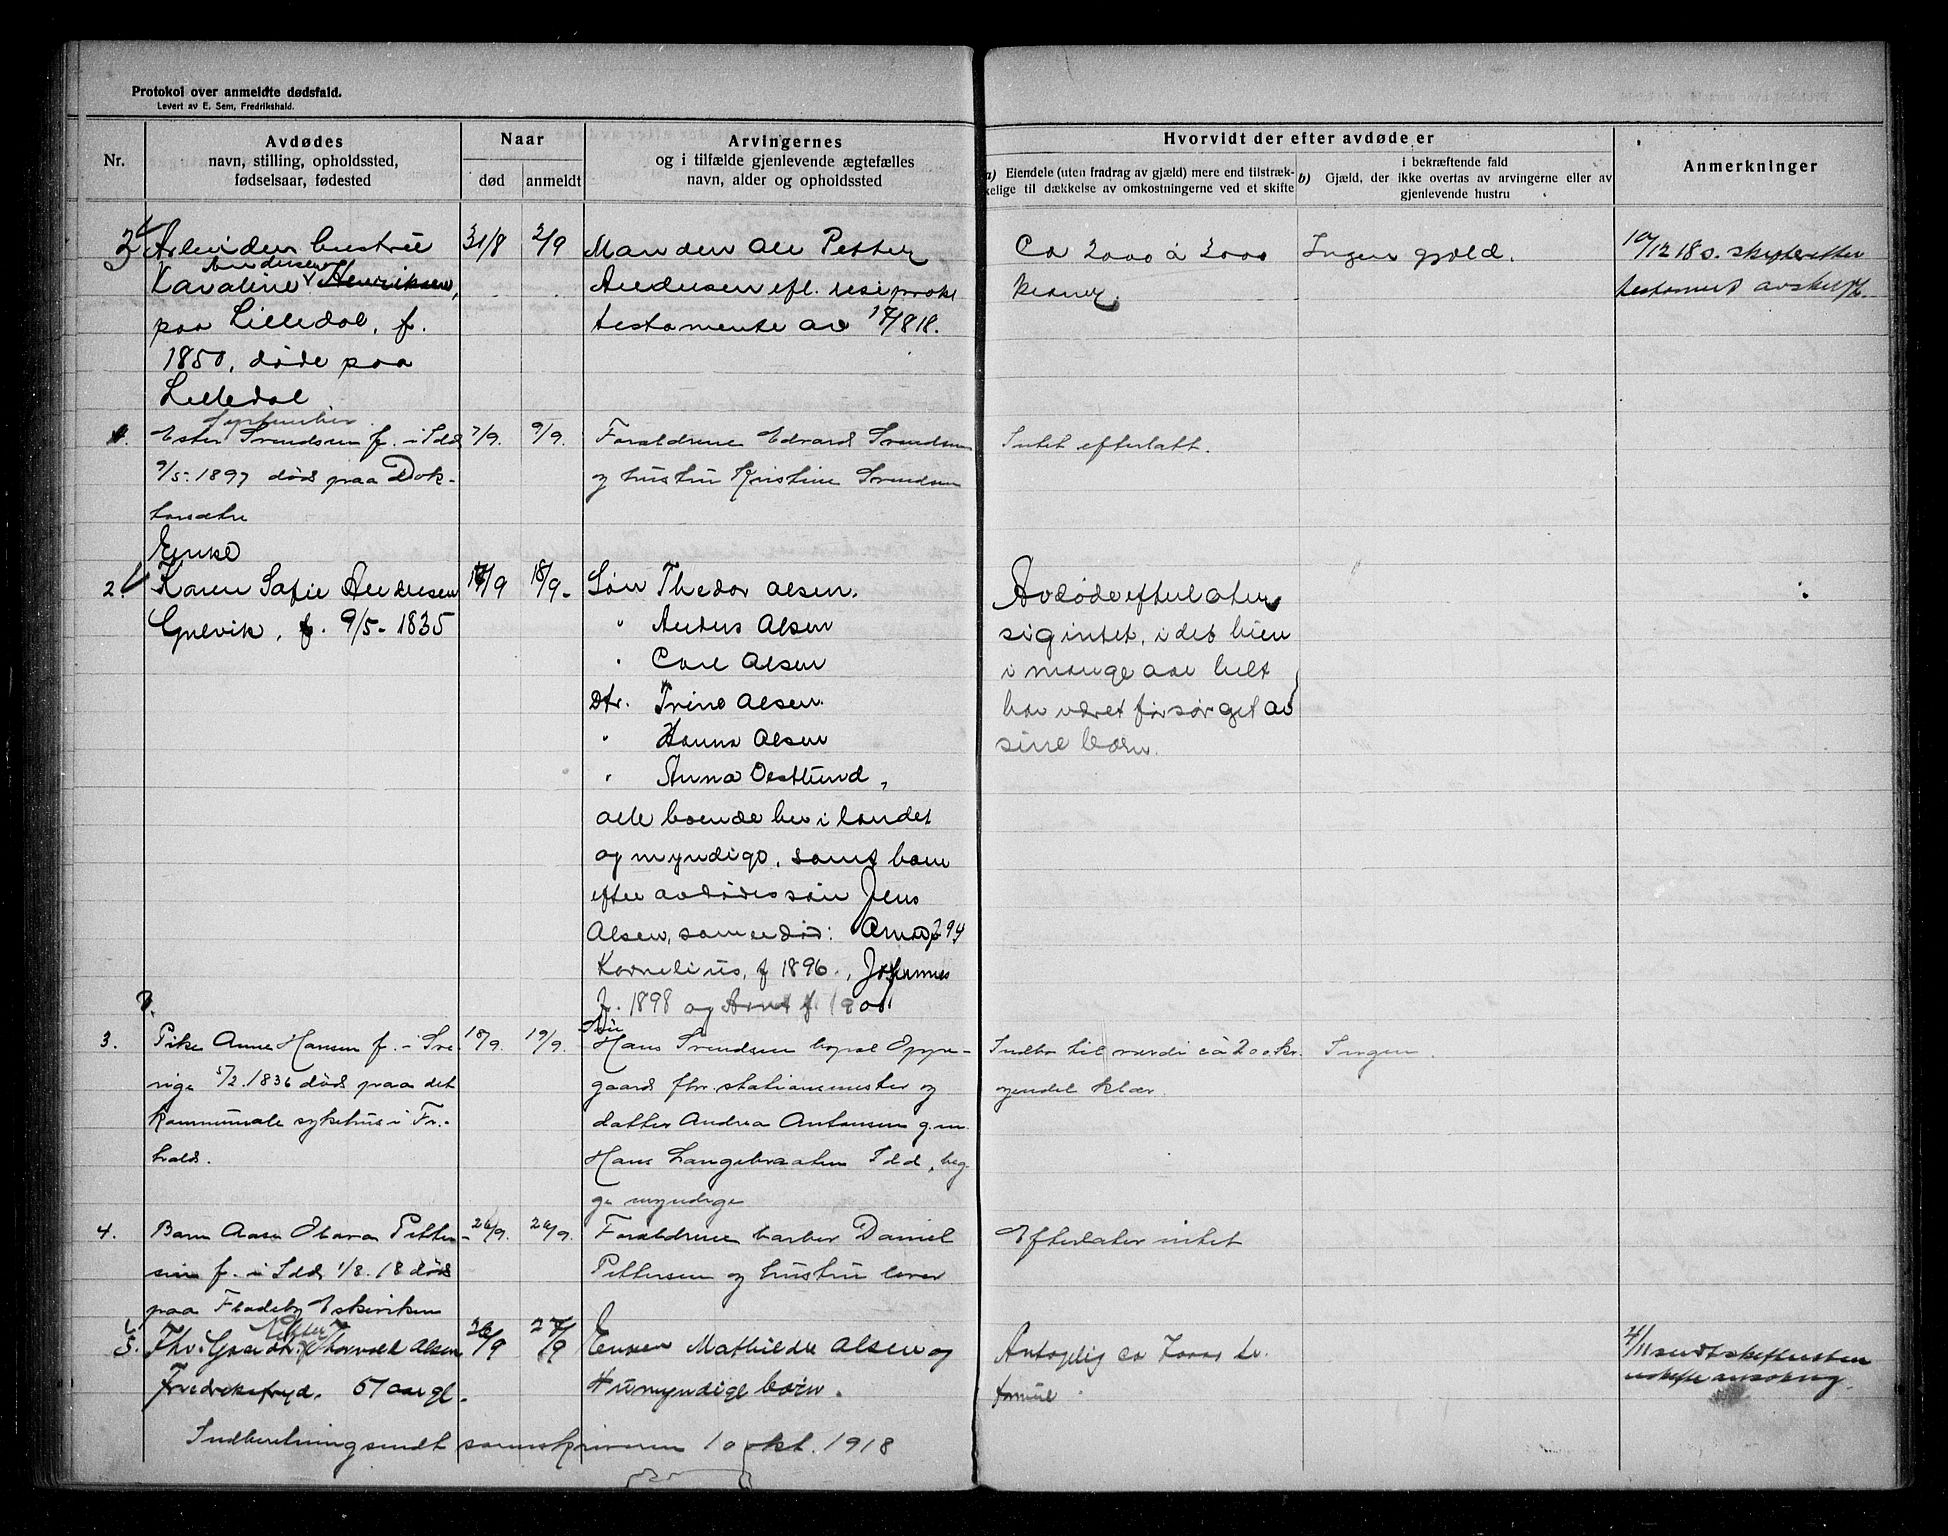 Protokol over anmeldte dødsfald.
Levert av E. Sem, Fredrikshald.
Nr.
Avdødes
navn, stilling, opholdssted,
fødselsaar, fødested
Naar
død
anmeldt
Arvingernes
og i tilfælde gjenlevende ægtefælles
navn, alder og opholdssted
Hvorvidt der efter avdøde er
a) Eiendele (uten fradrag av gjæld) mere end tilstræk-
kelige til dækkelse av omkostningerne ved et skifte
i bekræftende fald
b) Gjæld, der ikke overtas av arvingerne eller av
gjenlevende hustru
Anmerkninger
3
Arbeider hustru
Andersen
Karoline Henriksen,
paa Lilledal, f.
1850, døde paa
Lilledal
31/8
2/9
Manden Ole Petter
Andersen efl. resiprokt
testamente av 17/8 18.
Ca 2000 à 3000
kroner.
Ingen gjæld.
10/12 18 s. skifteretten
testament avskrift
September
1.
Ester Svendsen f. i Idd
9/5. 1897 død paa Dok-
torsætre
7/9.
9/9.
Forældrene Edvard Svendsen
og hustru Kristine Svendsen
Intet efterlatt.
2.
Enke
Karen Sofie Andresen
Gulvik, f. 9/5-1835
17/9
18/9-
Søn Thedor Olsen.
" Anders Olsen
" Carl Olsen
Dtr. Trine Olsen.
" Hanna Olsen
" Anna Oestlund,
alle boende her i landet
og myndige, samt barn
efter avdødes søn Jens
Olsen, som er død: Anna f 94
Kornelius, f 1896., Johannes
f. 1898 og Arnt f. 1901
Avdøde efterlater
sig intet, idet hun
i mange aar helt
har været forsørget av
sine barn.
3.
Pike Anne Hansen f. i Sve-
rige 5/2. 1836 død paa det
kommunale sykehus i Fr.-
hald.
18/9.
19/9.
Søn
Hans Svendsen bopæl Oppe-
gaard fhv. stationsmester og
datter Andrea Antonsen g.m.
Hans Langebraaten Idd, beg-
ge myndige
Indbo til værdi ca 200 kr.
og endel klær.
Ingen.
4.
Barn Aase Obora Petter-
sen f. i Idd 1/8. 18 død
paa Fladeby Eskeviken
26/9.
26/9.
Forældrene barber Daniel
Pettersen og hustru lever
Efterlater intet
5.
Petter
Fhv. Gaardbr. Thorvald Olsen
Fredriksfryd. 57 aar gl.
26/9
27/9
Enken Mathilde Olsen og
4 umyndige børn.
Antagelig ca 7000 kr.
formue
4/11 sendt skifteretten
uskifte ansøkning.
Indberetning sendt sorenskriveren 1 okt. 1918